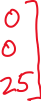 0
0
25